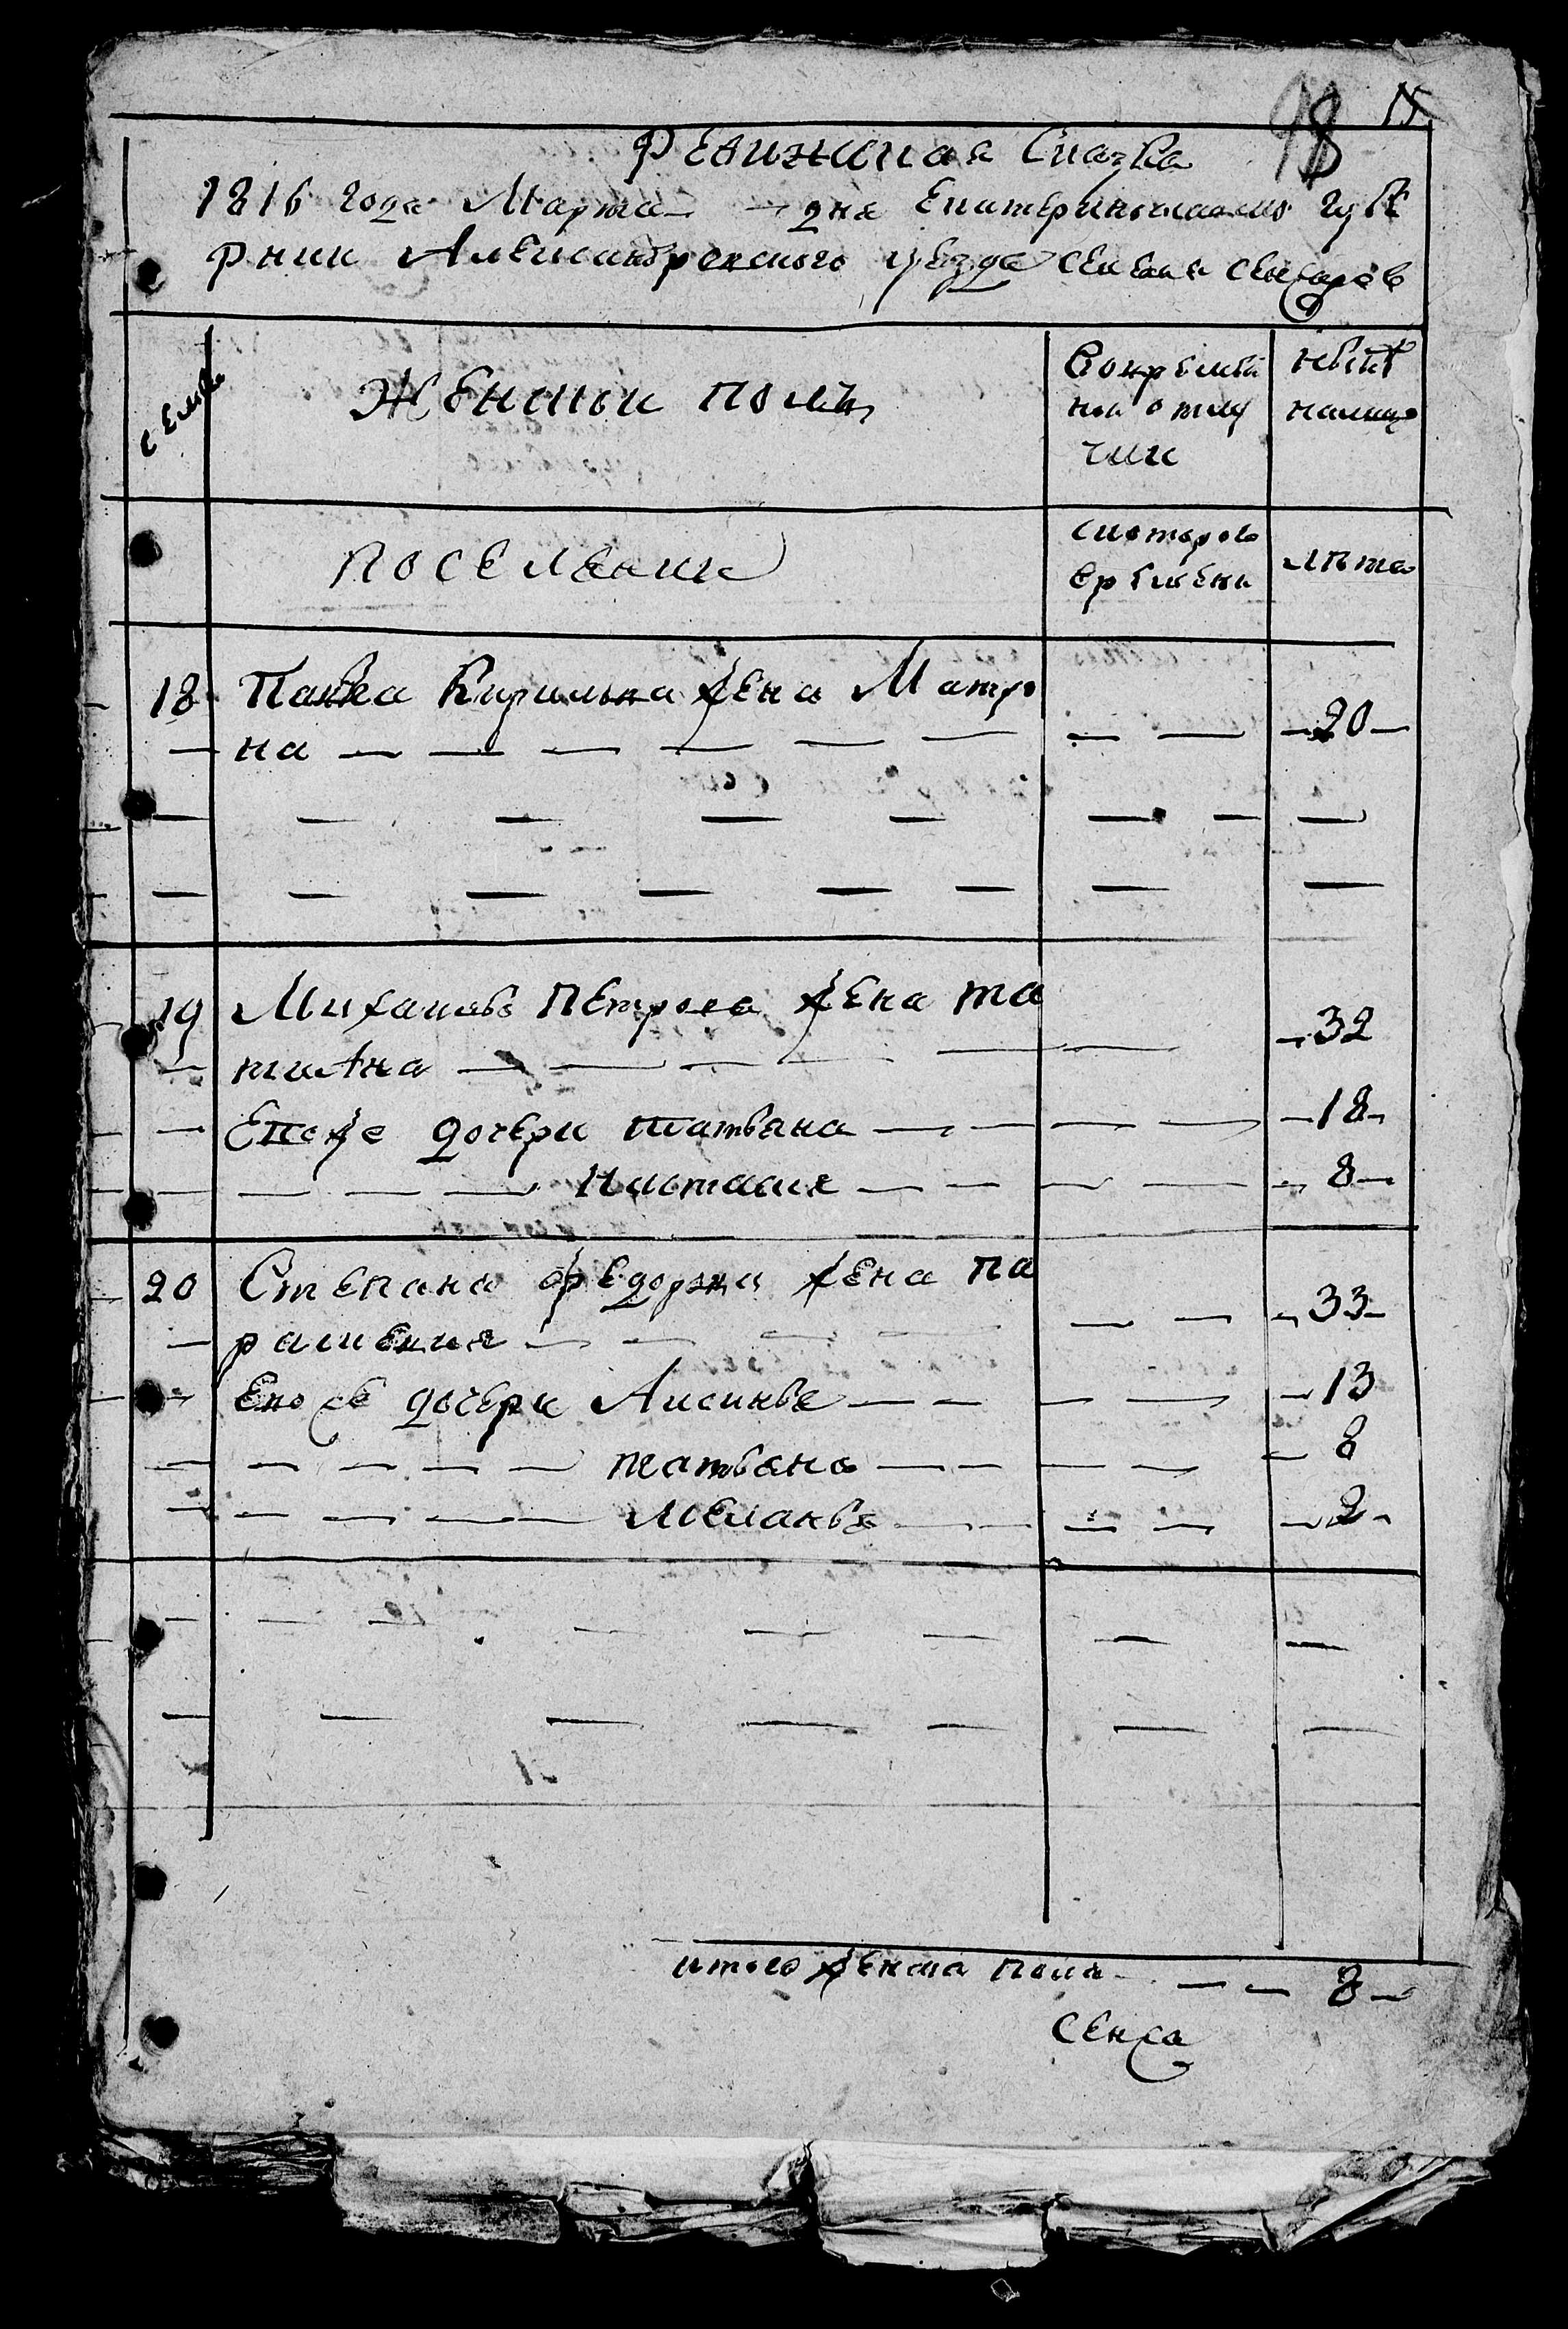 98
Ревижская Сказка
1816 года Марта — дня Екатеринославско губе
рнии Александровского уезда селения
семьи
Женской полъ
Во временной отлу
чки
ныне
налицо
поселяник
с которого
времени
лѣта
18 Павла Кирилова жена Матро — — 20 —
— на — — — — — —
19 Михайлы Петрова жена та — 32
— тияна — — — —
— Егоже дочери Татьяна — — — — — 18 —
— — — — Настасия — — — — — 8 —
20 Степана Федорова жена па — — — 33 —
— расковия — — — —
— Его же дочери Аксинья — — — — — 13
— — — — — — Татьяна — — — — — 8
— — — — — Меланья — — — — — 2 —
итого женска пола — — — 8 —